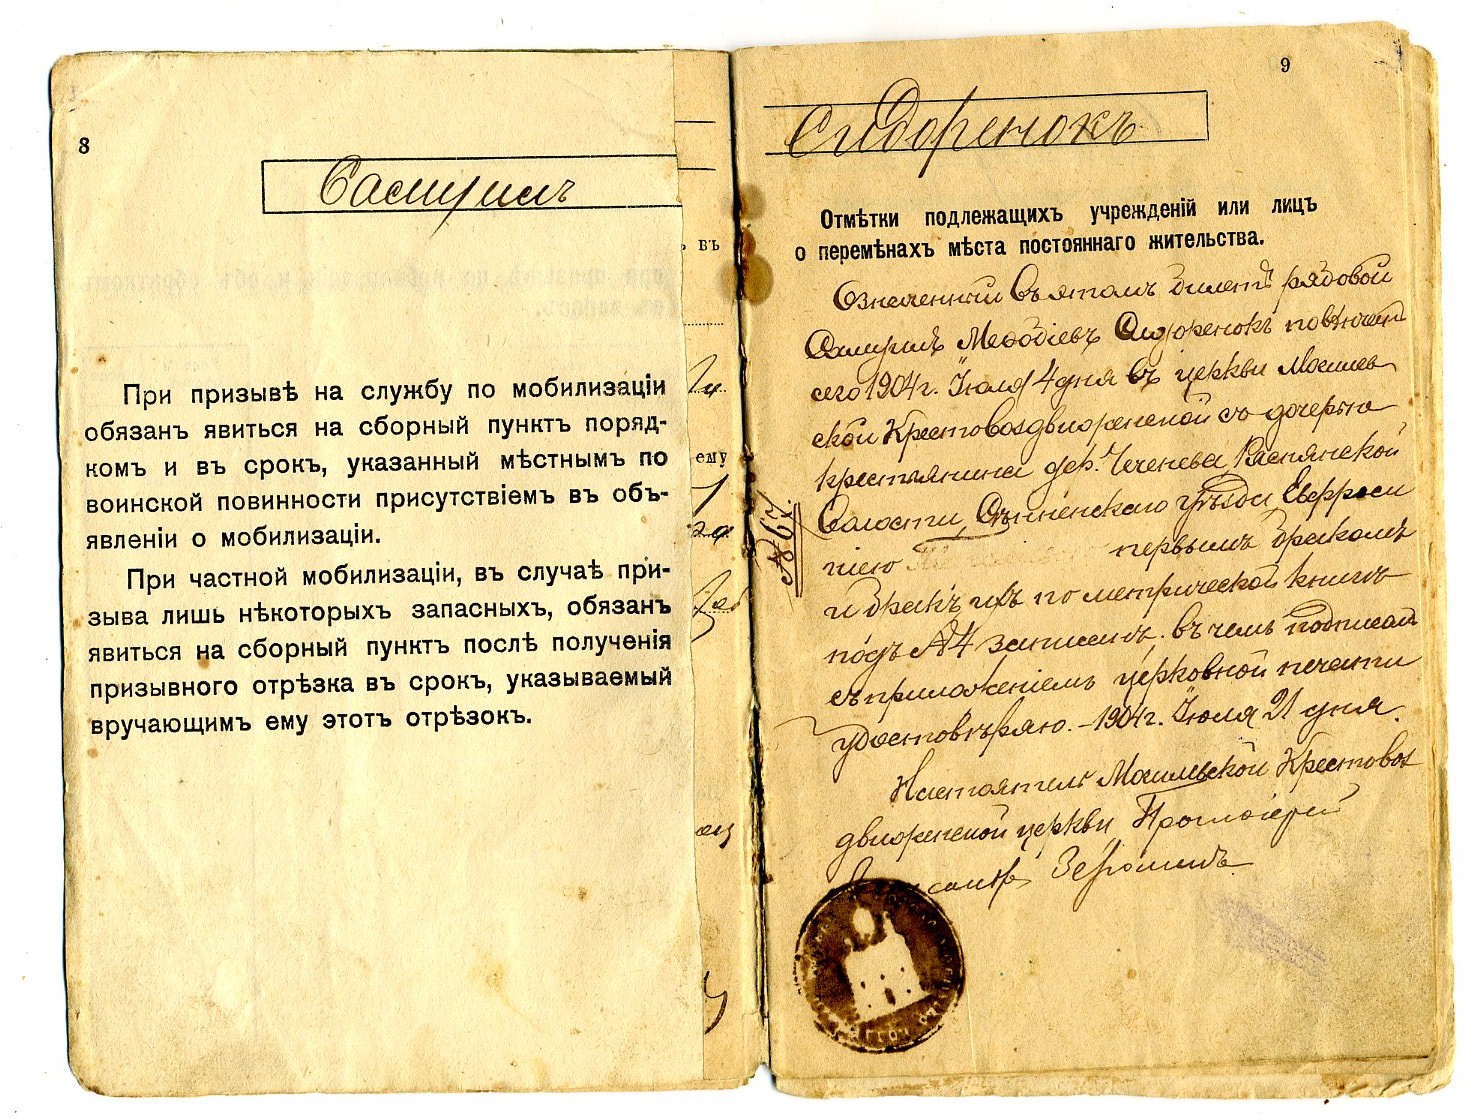 8
Самуилъ
При призывѣ на службу по мобилизаціи
обязанъ явиться на сборный пунктъ поряд-
комъ и въ срокъ, указанный мѣстнымъ по
воинской повинности присутствіемъ въ объ-
явленіи о мобилизаціи.
При частной мобилизаціи, въ случаѣ при-
зыва лишь нѣкоторыхъ запасныхъ, обязанъ
явиться на сборный пунктъ послѣ полученія
призывного отрѣзка въ срокъ, указываемый
вручающимъ ему этотъ отрѣзокъ.
въ
ему
9
Сидоренокъ
Отмѣтки подлежащихъ учрежденій или лицъ
о перемѣнахъ мѣста постояннаго жительства.
Означенный въ этомъ билетѣ рядовой
Самуилъ Меѳодіевъ Сидоренокъ повѣнчан
сего 1904 г. Іюля 4 дня въ церкви
ской Крестовоздвиженской съ дочерью
крестьянина дер. Ряснянской
Волости, Сѣнненскаго уѣзда Евфроси
ніею первымъ бракомъ
и бракъ ихъ по метрической книгѣ
подъ № 4 записанъ. въ чемъ подписью
съ приложеніемъ церковной печати
удостовѣряю. - 1904 г. Іюля 21 дня.
№ 67.
Настоятель Крестовоз
движенской церкви, Протоіерей